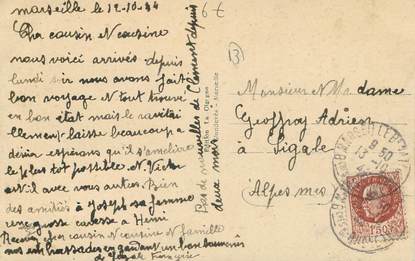 marseille le 12-10-44
Cher cousin et cousine
nous voici arrivés depuis
lundi soir nous avons fait
bon voyage et tout trouvé
en bon état mais le ravitai
llement laisse beaucoup a
désirer espérons qu'il s'améliore
le plus tot possible et Victor
est il avec vous autres. Bien
des amitiés à Joseph sa femme
une grosse caresse a Henri
Recevez cher cousin et cousine et famille
nos embrassades en gardant un bon souvenir
de Sigale Françoise
Pas de nouvelles de Clément depuis
deux mois
6€
13
Monsieur et Madame
Geoffroy Adrien
à Sigale
Alpes mes
9 30
13 -10
1F50